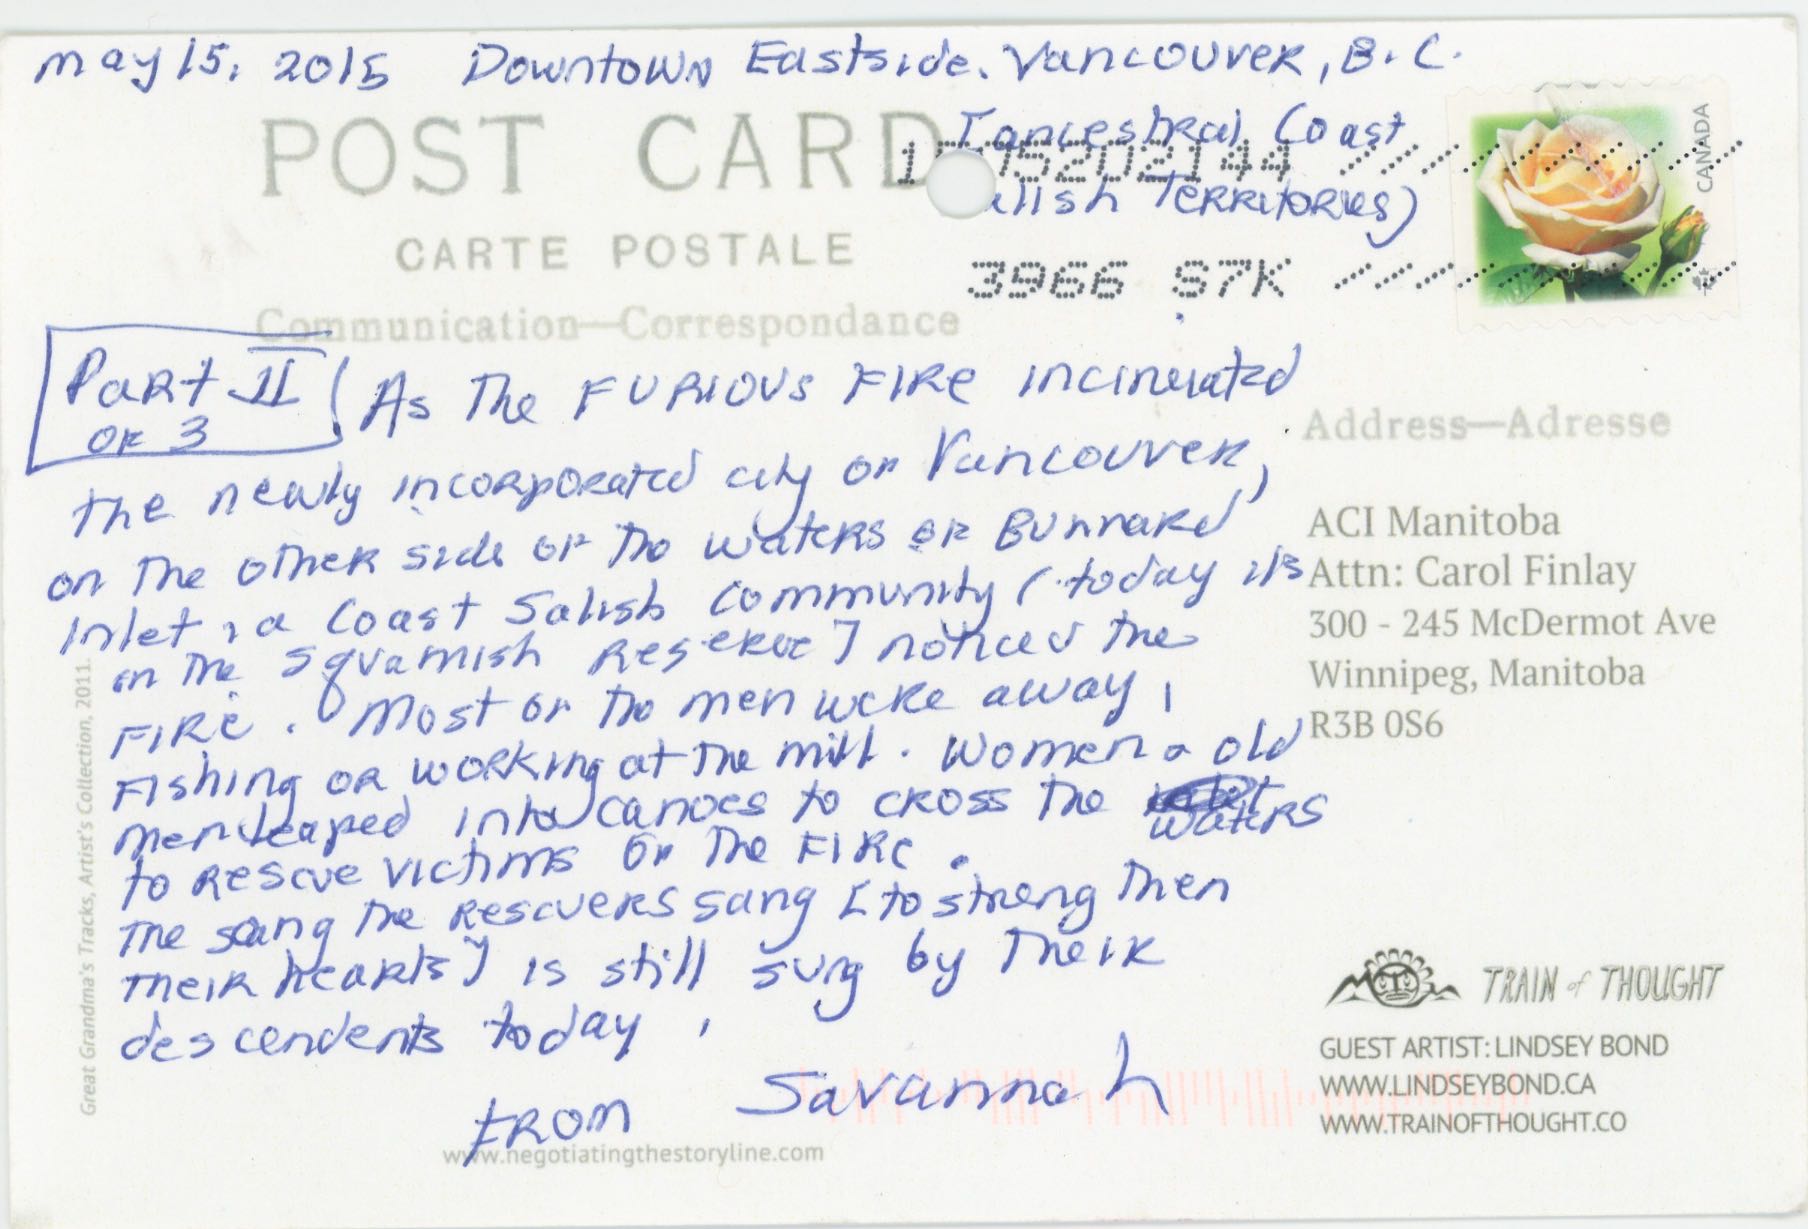 may 15, 2015 Downtown Eastside. Vancouver, B.C.
[ancestral Coast
alish Territories)
POST CARD
CARTE POSTALE
Communication—Correspondence
1505202144
3966 S7K
CANADA
Part II
of 3
As The FURIOUS FIRE incinerated
the newly incorporated city of Vancouver,
on The other side of The waters of Burrard
Inlet, a Coast Salish Community (today its
on The Squamish Reserve] noticed The
FIRE. Most of The men were away,
Fishing or working at The mill. Women & old
men leaped into canoes to cross The
waters
to Rescue victims of The FIRE.
The song The Rescuers sang [to streng Then
Their hearts] is still sung by Their
descendents today,
FROM Savannah
www.negotiatingthestoryline.com
Great Grandma's Tracks, Artist's Collection, 2011.
Address—Adresse
ACI Manitoba
Attn: Carol Finlay
300 - 245 McDermot Ave
Winnipeg, Manitoba
R3B 0S6
TRAIN of THOUGHT
GUEST ARTIST: LINDSEY BOND
WWW.LINDSEYBOND.CA
WWW.TRAINOFTHOUGHT.CO